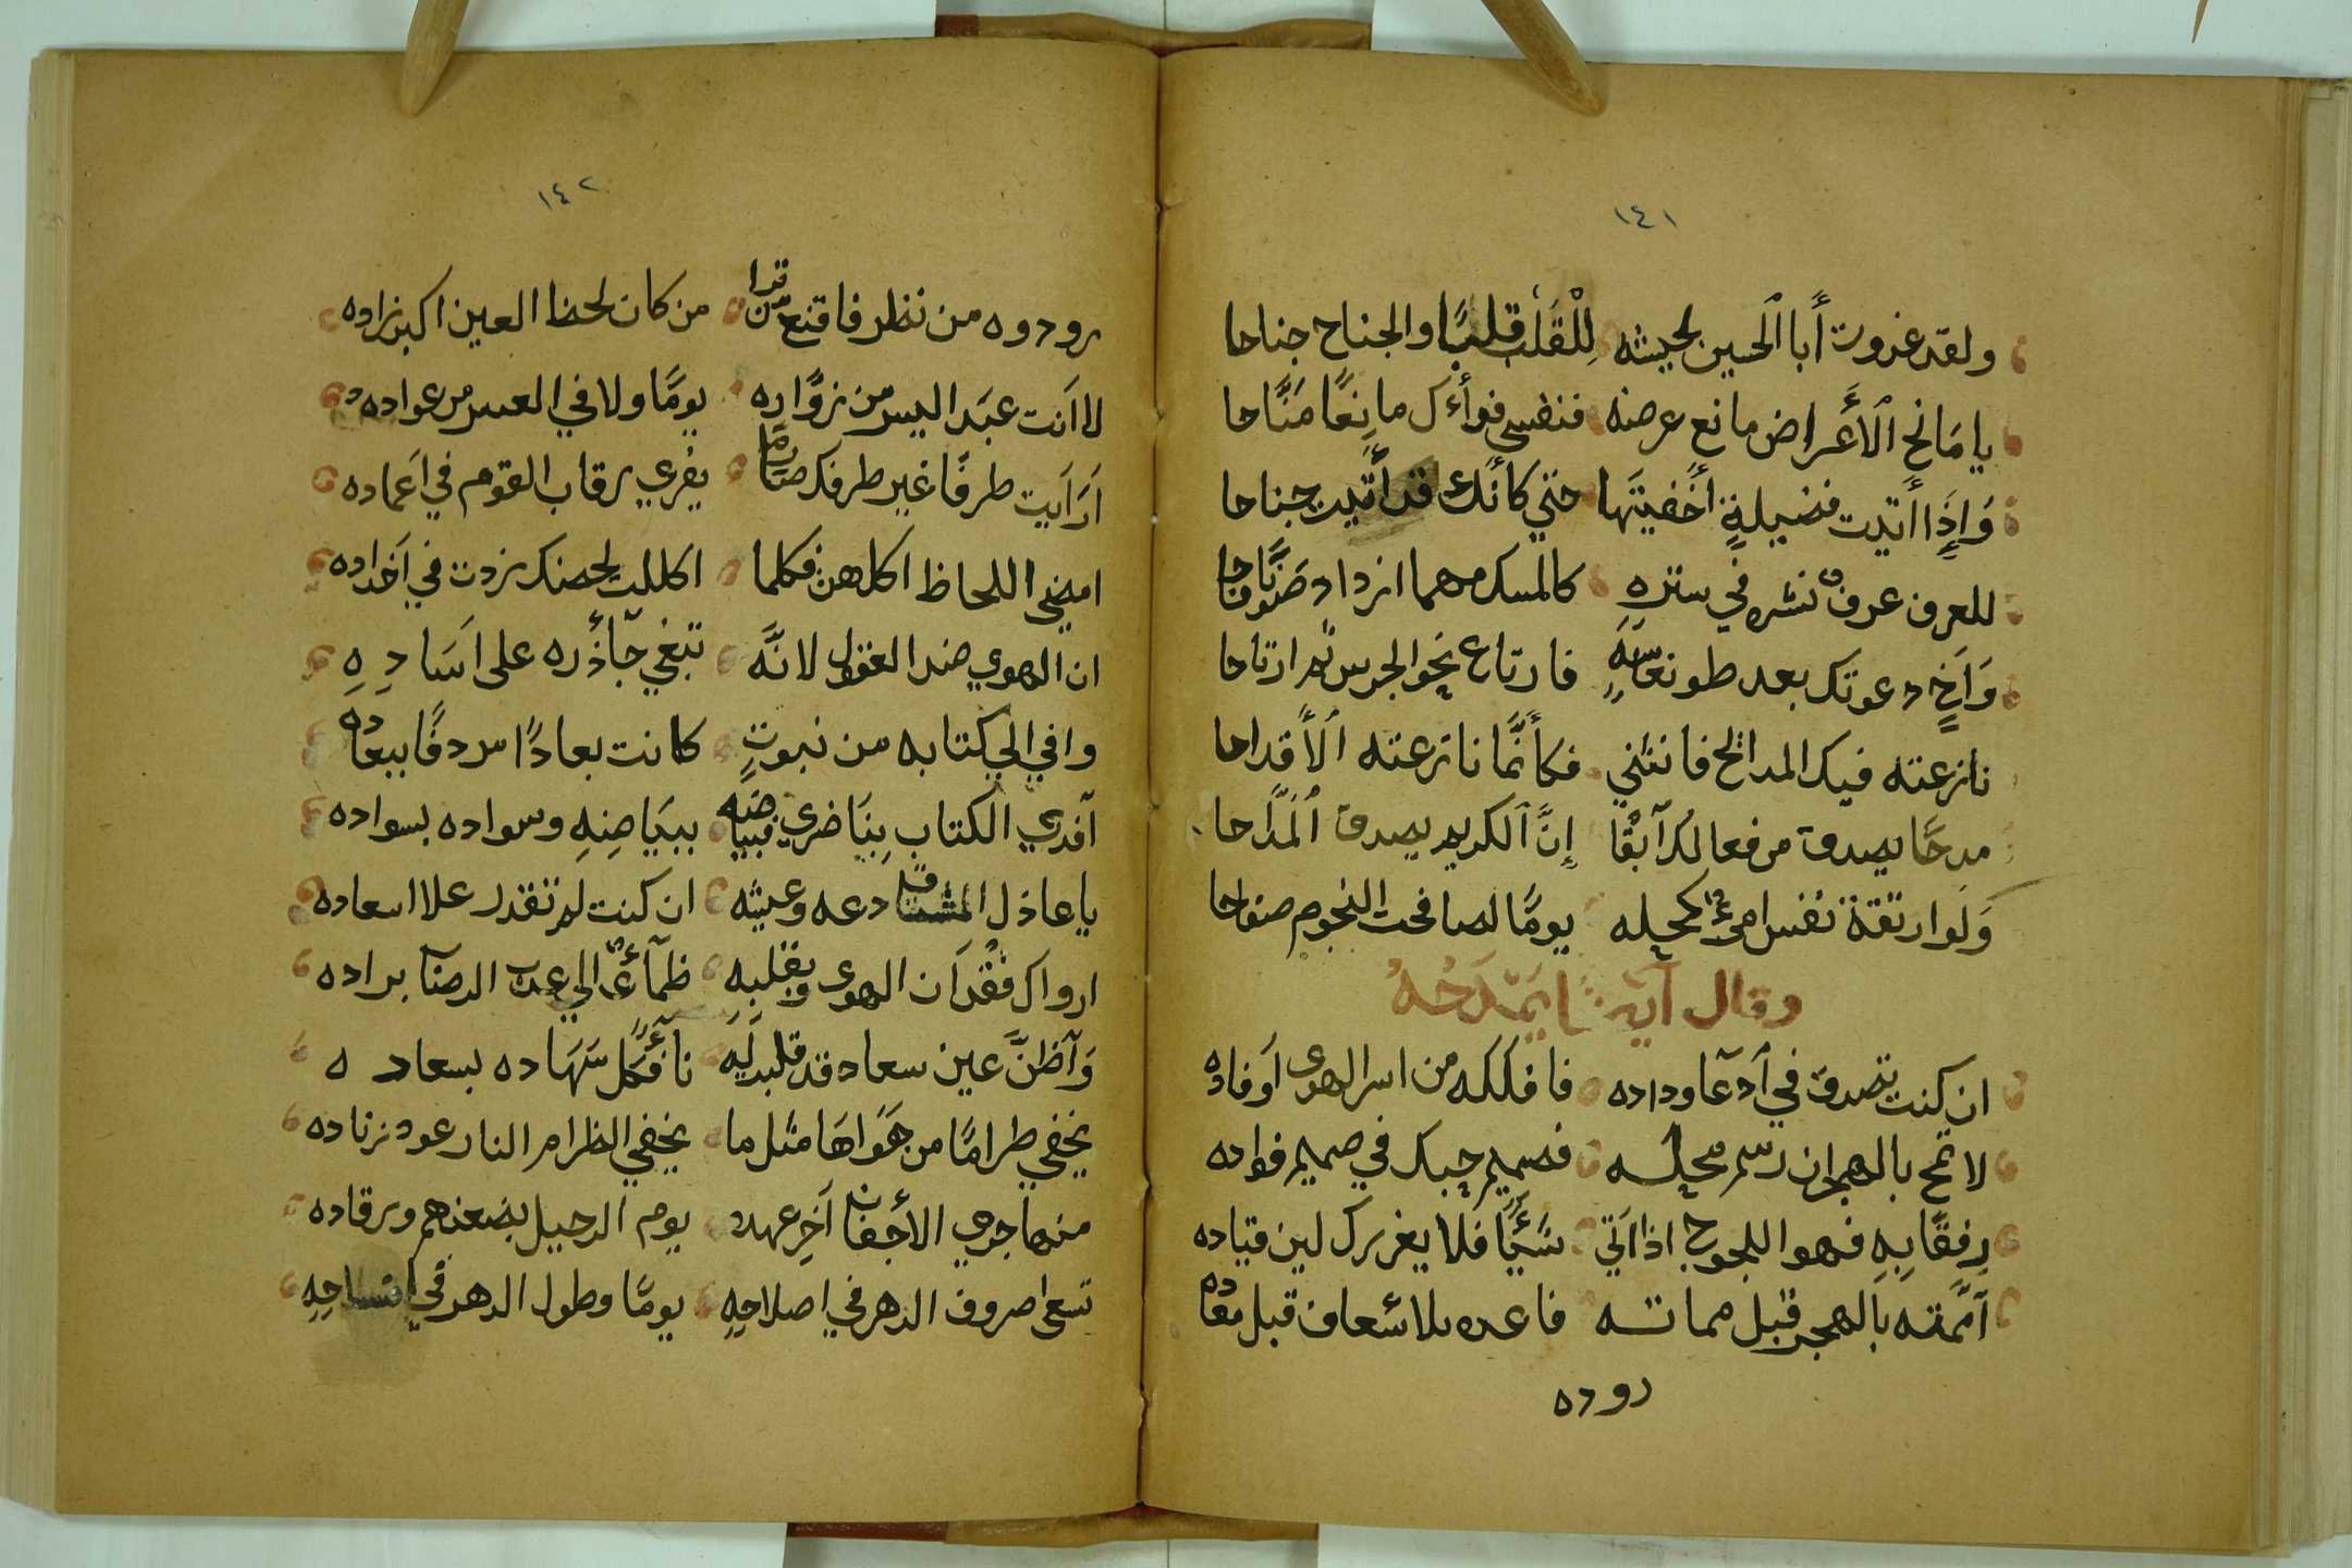 ١٤١
ولقد غزوت أبا الحسين بجيشه للقلب قلبًا والجناح جناحا
يا مانح الأعراض مانع عرضه فنفسي فوأءك مانعًا منّاحا
وإذا أتيت فضيلةٍ أخفيتها حتي كأنك قد أتيت جناحا
للعرف عرفٌ نشره في ستره كالمسك مهما ازداد صَوْنًا فاحا
وَاَخٍ دعوتك بعد طو نعاسهِ فارتاع نحو الجرس ثم ارتاحا
نازعته فيك المدائح فانثني فكأنّما نازعته الأقداحا
مدحًا يصدق من فعالك آبقًا إنّ الكريم يصدق المدّاحا
وَلو ارتقة نفس امرئٍ كمحله يومًا لصافحت النجوم صفاحا
وقال آيضًا يَمْدَحُهُ
ان كنت تصدق في آدعا وداده فافلكه من اسر الهوى أو فاده
لا تمح بالهجران رسم محله فصميم حبك في صميم فواده
رفقًا بِهِ فهو اللجوج اذا اتي شيئًا فلا يغررك لين قياده
آمّمته بالهجر قبل مماته فاعده بلاسعاف قبل معاده
روده
١٤٢
رودوه من نظر فاقنع من ترا من كان لحظ العين اكبر زاده
لا انت عبد اليس من زوّاره يومًا ولا في العيس من عواده
آرآيت طرفًا غير طرفك صارمًا يفري رقاب القوم في اغماده
امضي اللحاظ اكلهن فكلما اكللت لحضك زدت في آحداده
ان الهوي ضد العقول لانّه تبغي جآذره على اَسَادِهِ
وافي الي كتابه من نبوتٍ كانت بعادًا مردفًا ببعاده
آفدي الكتاب بنَاضري فبياضه ببيَاضِهِ وسواده بسواده
يا عاذل المشتاق دعه وعيشه ان كنت لم تقدر علا اسعاده
ارواك فقدان الهوى وبقلبهِ ظمآءٌ الي عدب الرضاب براده
وآظنّ عين سعاد قد قلبد ليه نأفكل سَهَاده بسعاده
يخفي ظرامًا من جَوَاهَا مثل ما يخفي الظرام النار عود زناده
منها جري الأجفان آخر عهد يوم الرحيل بضعنهم ورقاده
تسعا صروف الدهر في اصلاحِهِ يومًا وطول الدهر في افساحِهِ